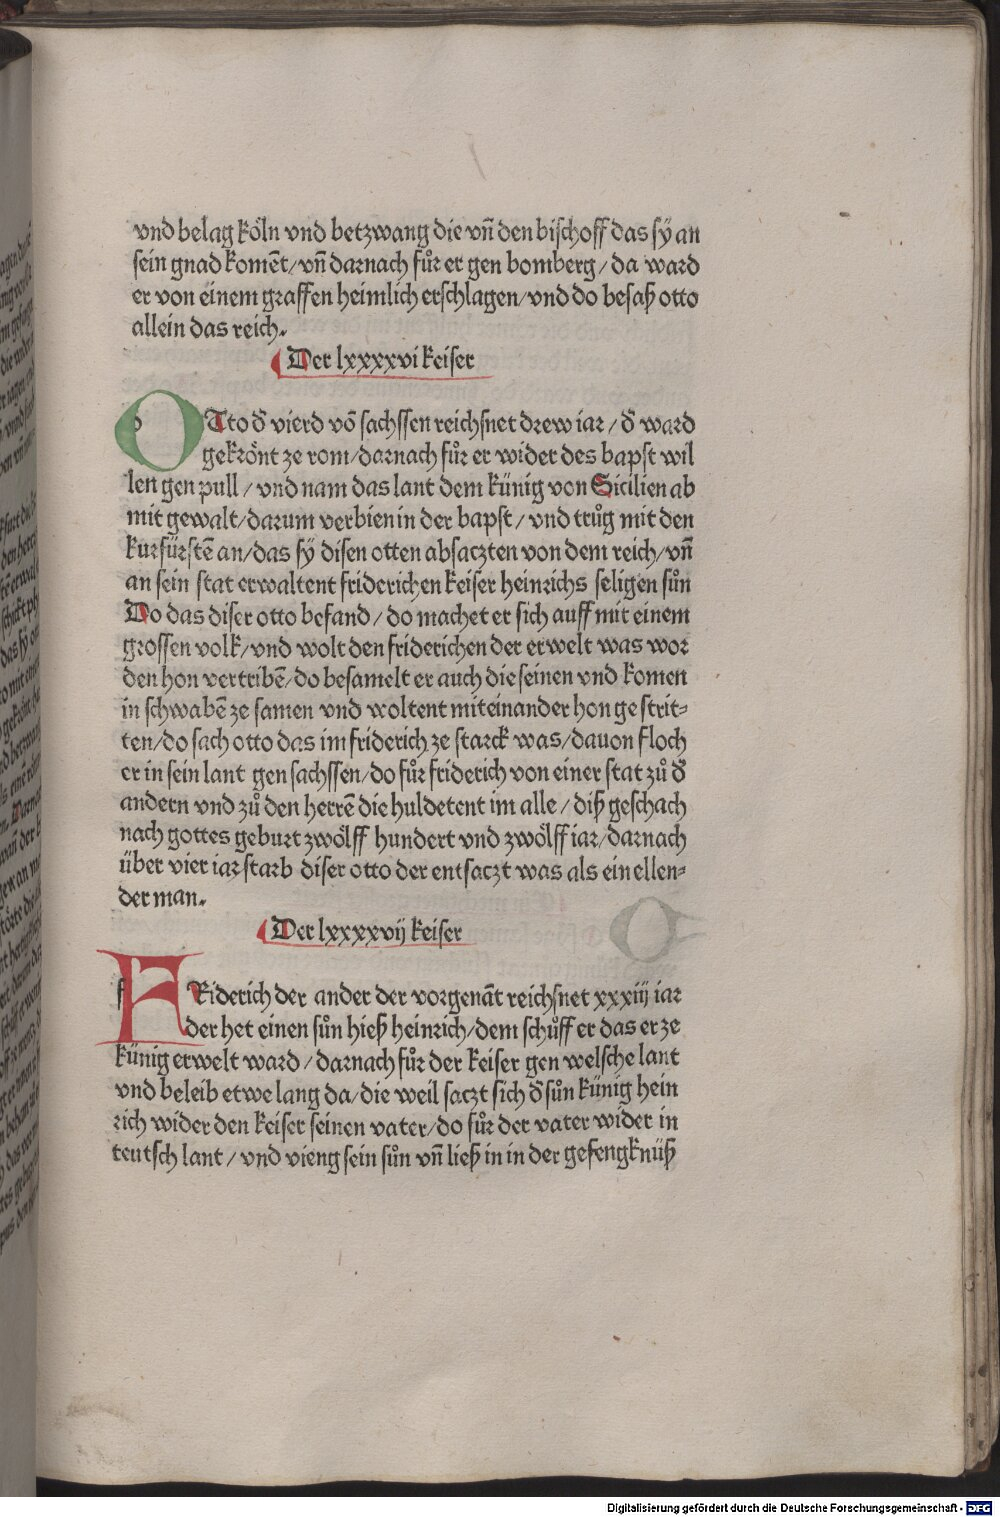 vnd belag köln vnd betzwang die vn̄ den bischoff das sÿ an
sein gnad komēt/vn̄ darnach fůr er gen bomberg/da ward
er von einem graffen heimlich erschlagen/vnd do besaß otto
allein das reich.
Der lxxxxvi keiser
OTto d̄ vierd vō sachssen reichsnet drew iar/d̄ ward
gekrönt ze rom/darnach fůr er wider des bapst wil
len gen pull/vnd nam das lant dem künig von Sicilien ab
mit gewalt/darum verbien in der bapst/vnd trůg mit den
kurfürstē an/das sÿ disen otten absaczten von dem reich/vn̄
an sein stat erwaltent friderichen keiser heinrichs seligen sůn
Do das diser otto befand/do machet er sich auff mit einem
grossen volk/vnd wolt den friderichen der erwelt was wor
den hon vertribē/do besamelt er auch die seinen vnd komen
in schwabē ze samen vnd woltent miteinander hon gestrit-
ten/do sach otto das im friderich ze starck was/dauon floch
er in sein lant gen sachssen/do fůr friderich von einer stat zů d̄
andern vnd zů den herrē die huldetent im alle/diß geschach
nach gottes geburt zwölff hundert vnd zwölff iar/darnach
über vier iar starb diser otto der entsaczt was als ein ellen-
der man.
Der lxxxxvij keiser
FRiderich der ander der vorgenāt reichsnet xxxiij iar
der het einen sůn hieß heinrich/dem schůff er das er ze
künig erwelt ward/darnach fůr der keiser gen welsche lant
vnd beleib etwe lang da/die weil saczt sich d̄ sůn künig hein
rich wider den keiser seinen vater/do fůr der vater wider in
teutsch lant/vnd vieng sein sůn vn̄ ließ in in der gefengknüß
Digitalisierung gefördert durch die Deutsche Forschungsgemeinschaft - DFG